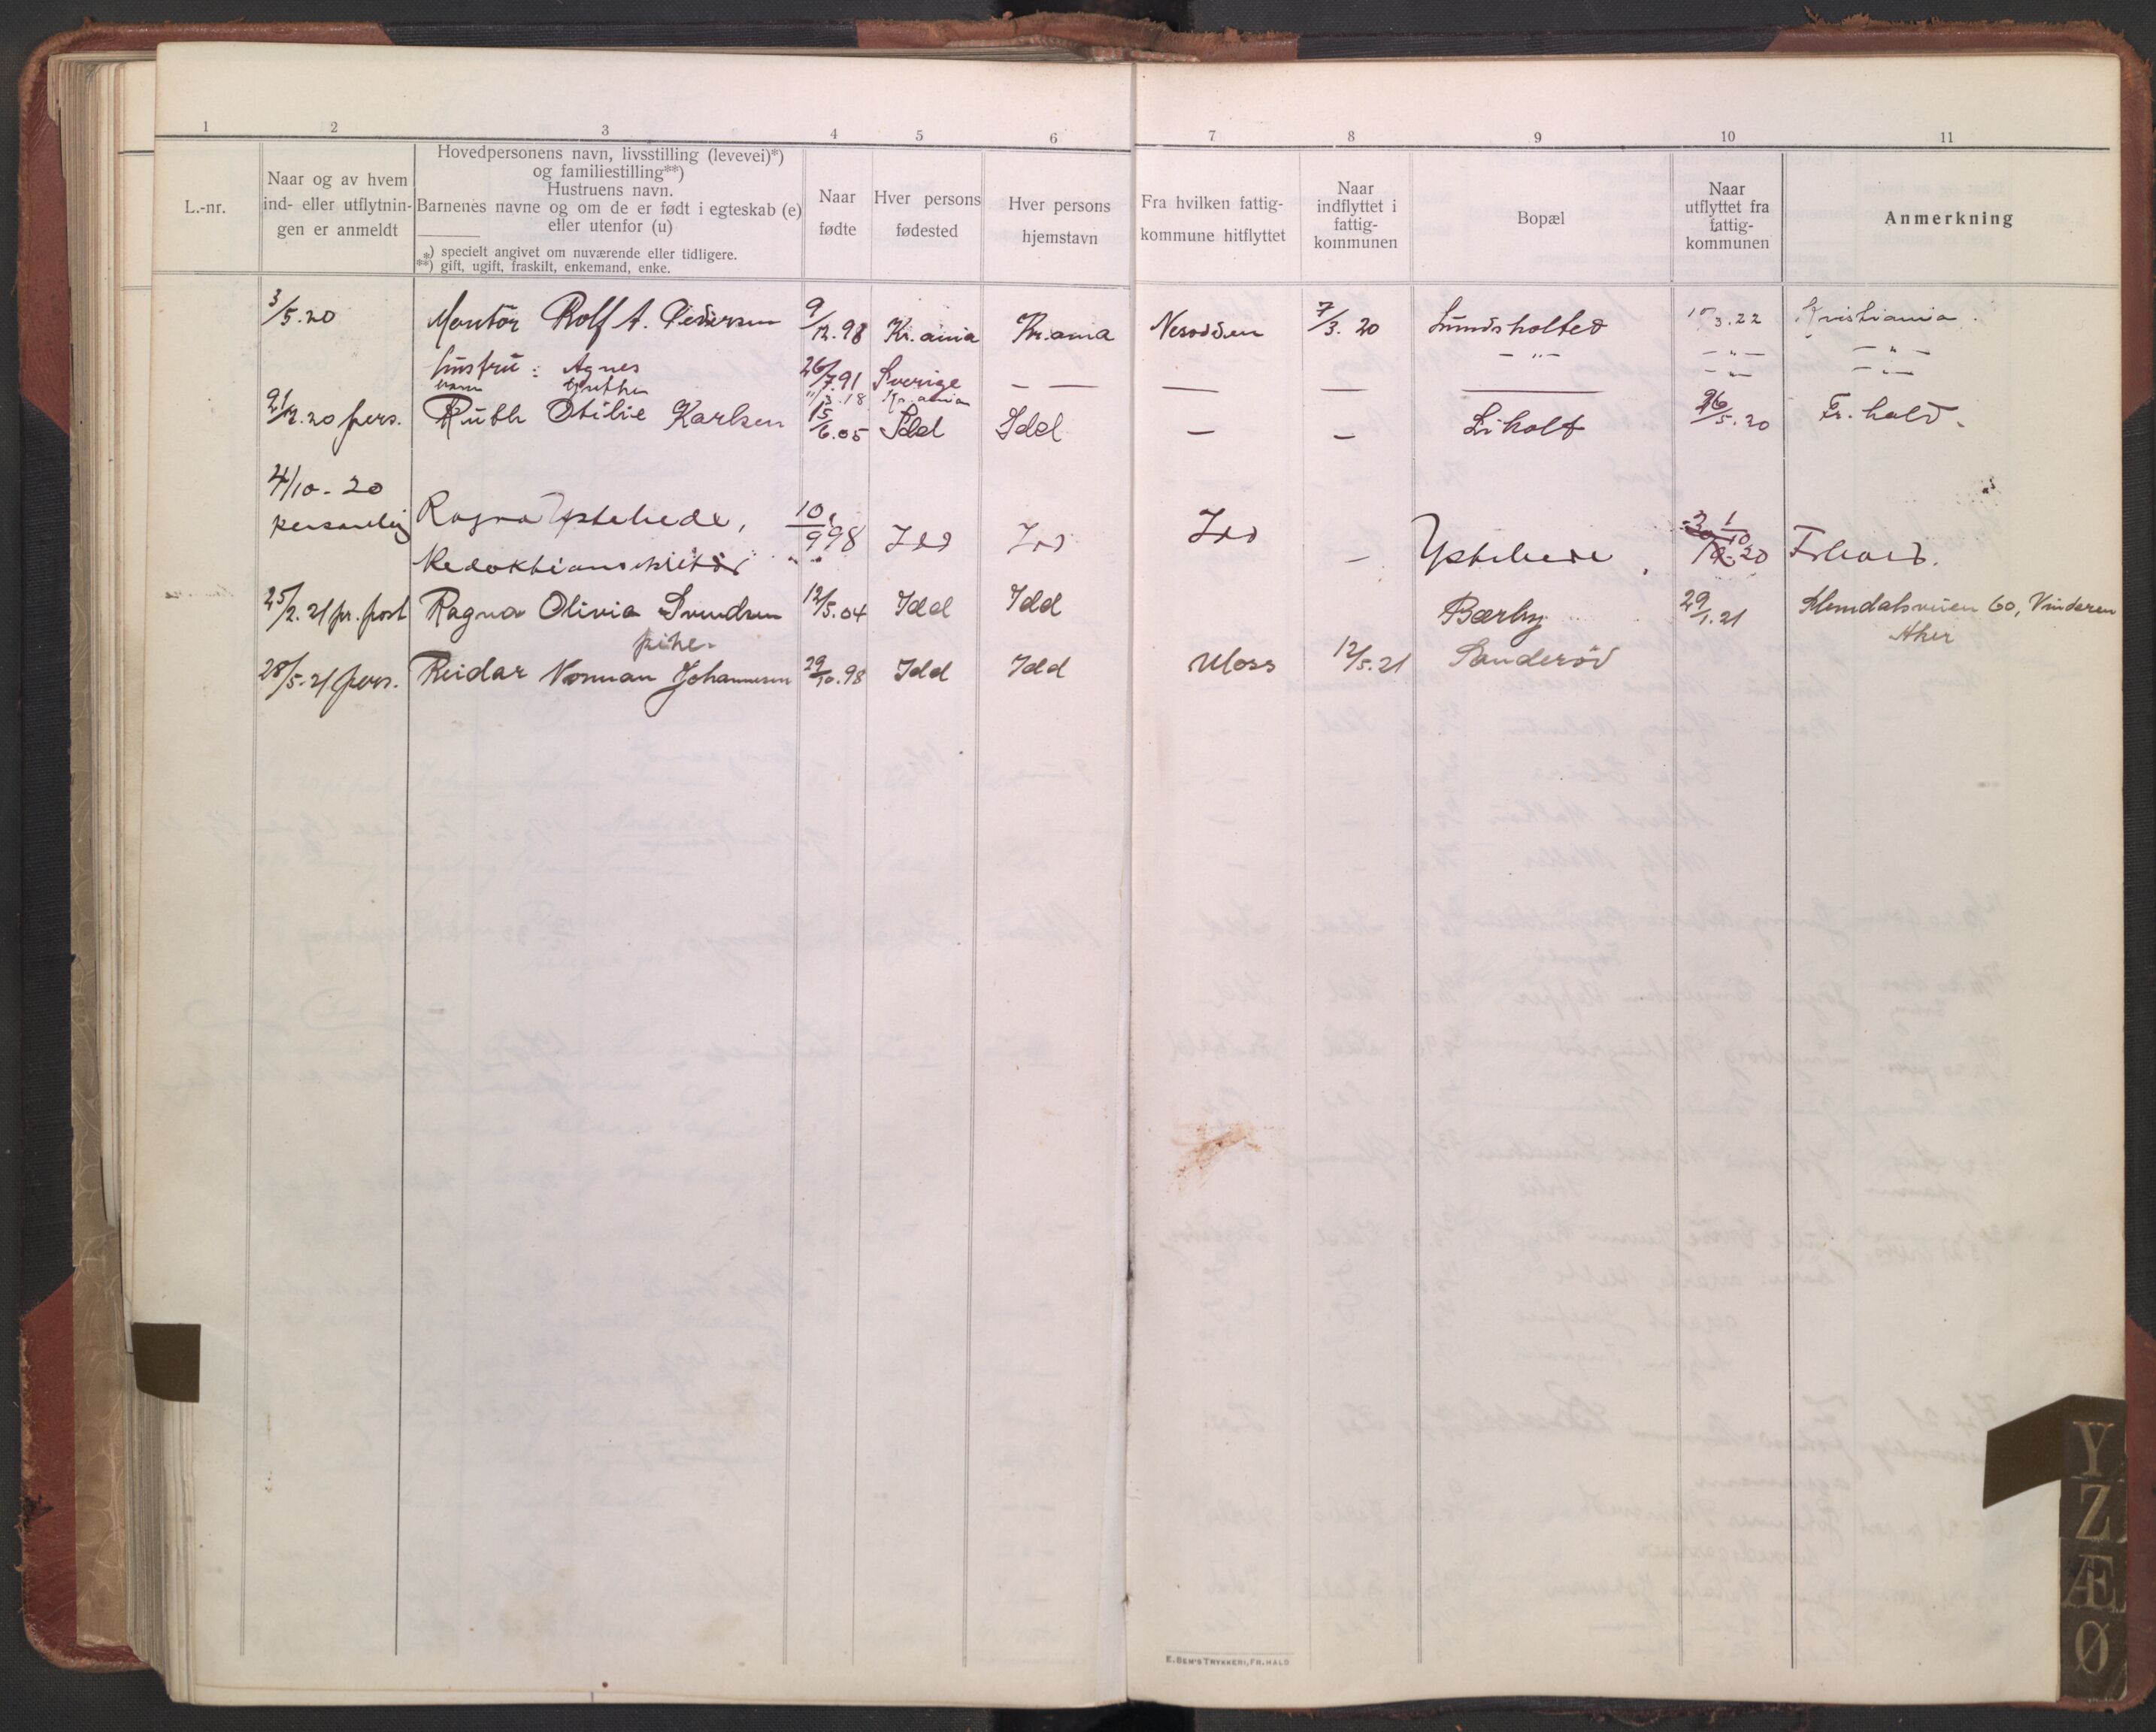 1 2 3 4 5 6 7 8 9 10 11
L.-nr.
Naar og av hvem
ind- eller utflytnin-
gen er anmeldt
Hovedpersonens navn, livsstilling (levevei)*)
og familiestilling**)
Hustruens navn.
Barnenes navne og om de er født i egteskab (e)
eller utenfor (u)
*) specielt angivet om nuværende eller tidligere.
**) gift, ugift, fraskilt, enkemand, enke.
Naar
fødte
Hver persons
fødested
Hver persons
hjemstavn
Fra hvilken fattig-
kommune hitflyttet
Naar
indflyttet i
fattig-
kommunen
Bopæl
Naar
utflyttet fra
fattig-
kommunen
Anmerkning
3/5.20 Montör Rolf A. Pedersen 9/12.98 Kr.ania Kr.ania Nesodden 7/3. 20 Lundsholted 10/3.22 Kristiania.
hustru: Agnes 26/7.91 Sverige — — — — — „ — — „ — — „ —
barn Grethe 11/3.18 Kr.ania — „ — — „ —
21/2.20 pers. Ruth Otilie Karlsen 15/6.05 Idd Idd — — Liholt 26/5.20 Fr.hald.
4/10-20
personlig Ragna Ystehede, 10/9 98 Idd Idd Idd — Ystehede 1/10 20 Frhald.
Redaktionssekretær
25/2.21 pr. post Ragna Olivia Svendsen 12/5.04 Idd Idd Bærby 29/1.21 Slemdalsveien 60, Vinderen
pike. Aker
28/5-21 pers. Reidar Norman Johannesen 29/10.98 Idd Idd Moss 12/5.21 Sanderød
E. SEM'S TRYKKERI, FR.HALD
Y
Z
Æ
Ø